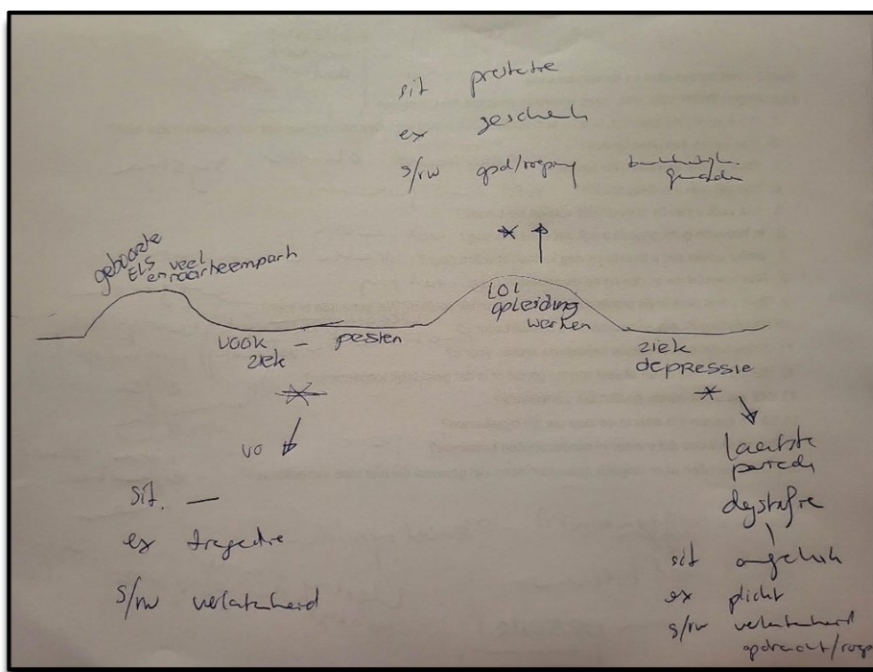 sit prestatie
ex geschenk
s/rw god/roeping
geboorte
ELS veel
en naar heempark
LOI
opleiding
werken
vook
ziek — pesten
ziek
depressie
vo
sit. —
ex tragedie
s/rw verlatenheid
laatste
periode
sit ongeluk
ex plicht
s/rw verlatenheid
opdracht/roep